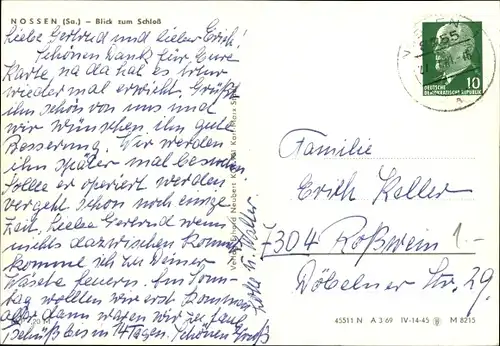 NOSSEN (Sa.) – Blick zum Schloß
Liebe Gertrud und lieber Erich!
Schönen Dank für Eure
Karte, na da hat es
wieder mal erwischt. Grüßt
ihn schön von uns und
wir wünschen ihm gute
Besserung. Wir werden
ihn später mal besuchen.
Sollte er operiert werden
vergeht schon noch einige
Zeit. Liebe Gertrud wenn
nichts dazwischen kommt
komme ich zu Deiner
Wäsche feuern. Am Sonn-
tag wollten wir erst kommen
aber dann waren wir zu faul
Tschüß bis in 14 Tagen. Schönen Gruß
Lotte u. Walter
Karl-Marx-Stadt
10
DEUTSCHE
DEMOKRATISCHE REPUBLIK
Familie
Erich Keller
7304 Roßwein 1.-
Döbelner Str. 29.
45511 N A 3 69 IV-14-45 M 8215